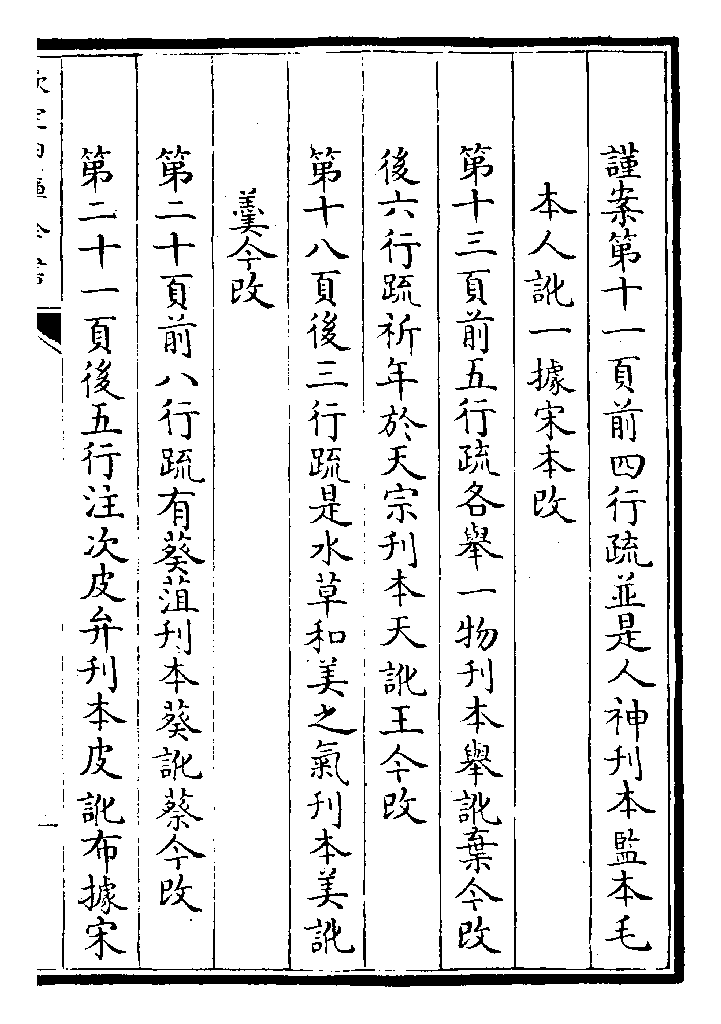 謹案第十一頁前四行疏並是人神刊本監本毛
本人訛一據宋本改
第十三頁前五行疏各舉一物刊本舉訛葉今改
後六行疏祈年於天宗刊本天訛王今改
第十八頁後三行疏是水草和美之氣刊本美訛
羹今改
第二十頁前八行疏有葵菹刊本葵訛蔡今改
第二十一頁後五行注次皮弁刊本皮訛布據宋